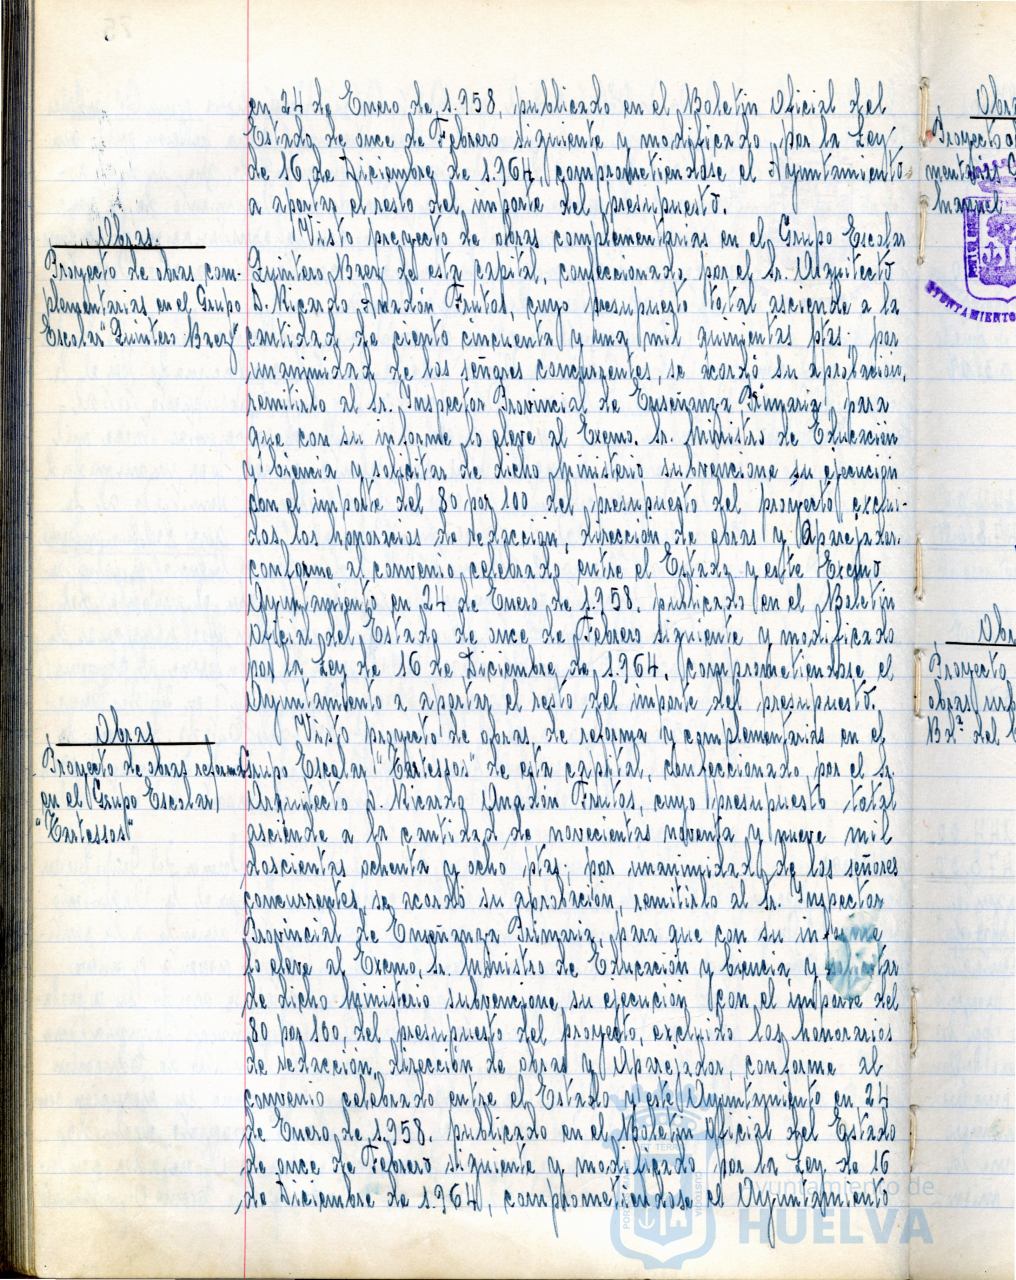 en 24 de Enero de 1.958, publicado en el Boletín Oficial del
Estado de once de Febrero siguiente y modificado por la Ley
de 16 de Diciembre de 1.964, comprometiendose el Ayuntamiento
a aportar el resto del importe del presupuesto.
Obras.
Proyecto de obras com-
plementarias en el Grupo
Escolar "Quintero Baez"
Visto proyecto de obras complementarias en el Grupo Escolar
Quintero Baez de esta capital, confeccionado por el Sr. Arquitecto
D. Ricardo Anadón Frutos, cuyo presupuesto total asciende a la
cantidad de ciento cincuenta y una mil quinientas ptas; por
unanimidad de los señores concurrentes, se acordó su aprobación,
remitirlo al Sr. Inspector Provincial de Enseñanza Primaria para
que con su informe lo eleve al Excmo. Sr. Ministro de Educación
y Ciencia y solicitar de dicho Ministerio subvencione su ejecución
con el importe del 80 por 100 del presupuesto del proyecto exclui-
dos los honorarios de redacción, dirección de obras y Aparejador,
conforme al convenio celebrado entre el Estado y este Excmo
Ayuntamiento en 24 de Enero de 1.958, publicado en el Boletín
Oficial del Estado de once de Febrero siguiente y modificado
por la Ley de 16 de Diciembre de 1.964, comprometiendose el
Ayuntamiento a aportar el resto del importe del presupuesto.
Obras
Proyecto de obras reforma
en el Grupo Escolar
"Tartessos"
Visto proyecto de obras de reforma y complementarias en el
Grupo Escolar "Tartessos" de esta capital, confeccionado por el Sr.
Arquitecto D. Ricardo Anadón Frutos, cuyo presupuesto total
asciende a la cantidad de novecientas noventa y nueve mil
doscientas ochenta y ocho ptas; por unanimidad de los señores
concurrentes, se acordó su aprobación, remitirlo al Sr. Inspector
Provincial de Enseñanza Primaria, para que con su informe
lo eleve al Excmo. Sr. Ministro de Educación y Ciencia y
de dicho Ministerio subvencione su ejecución con el importe del
80 por 100, del presupuesto del proyecto, excluido los honorarios
de redacción, dirección de obras y Aparejador, conforme al
convenio celebrado entre el Estado y este Ayuntamiento en 24
de Enero de 1.958, publicado en el Boletín Oficial del Estado
de once de Febrero siguiente y modificado por la Ley de 16
de Diciembre de 1.964, comprometiendose el Ayuntamiento
Proyecto
AYUNTAMIENTO
Proyecto
Ayuntamiento de
HUELVA